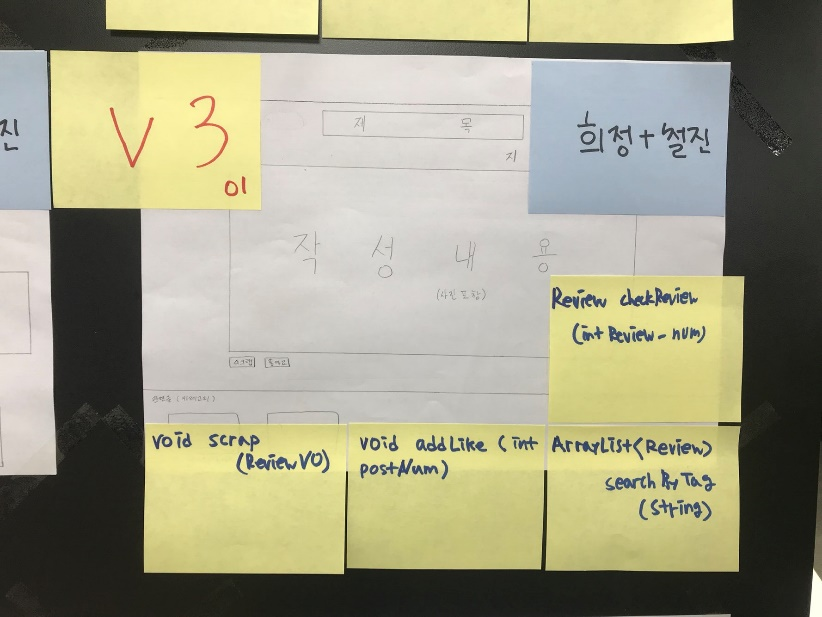 진
V 3
01
제 목
지
희정+철진
작 성 내 용
(사진 포함)
Review checkReview
(int Review-num)
스크랩 좋아요
void scrap
(ReviewVO)
void addLike (int
postNum)
ArrayList<Review>
searchByTag
(String)